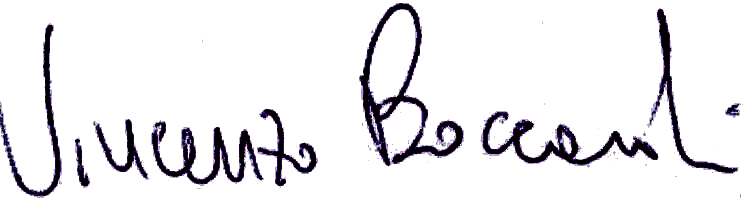 Vincenzo Boccardi